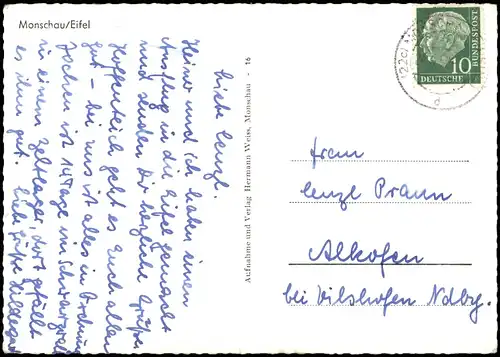 Monschau/Eifel
Liebe Lenzl.
Heiner und ich haben einen
Ausflug in die Eifel gemacht
und senden Dir herzliche Grüße
Hoffentlich geht es Euch allen
gut - bei uns ist alles in Ordnung
Jochen ist 14 Tage im Schwarzwald
in einem Zeltlager, dort gefällt
es ihm gut. Liebe Grüße Hildegard
Aufnahme und Verlag Hermann Weiss, Monschau - 16
10
DEUTSCHE
BUNDESPOST
(22c)
d
Frau
Lenzl Praun
Alkofen
bei Vilshofen Ndby.